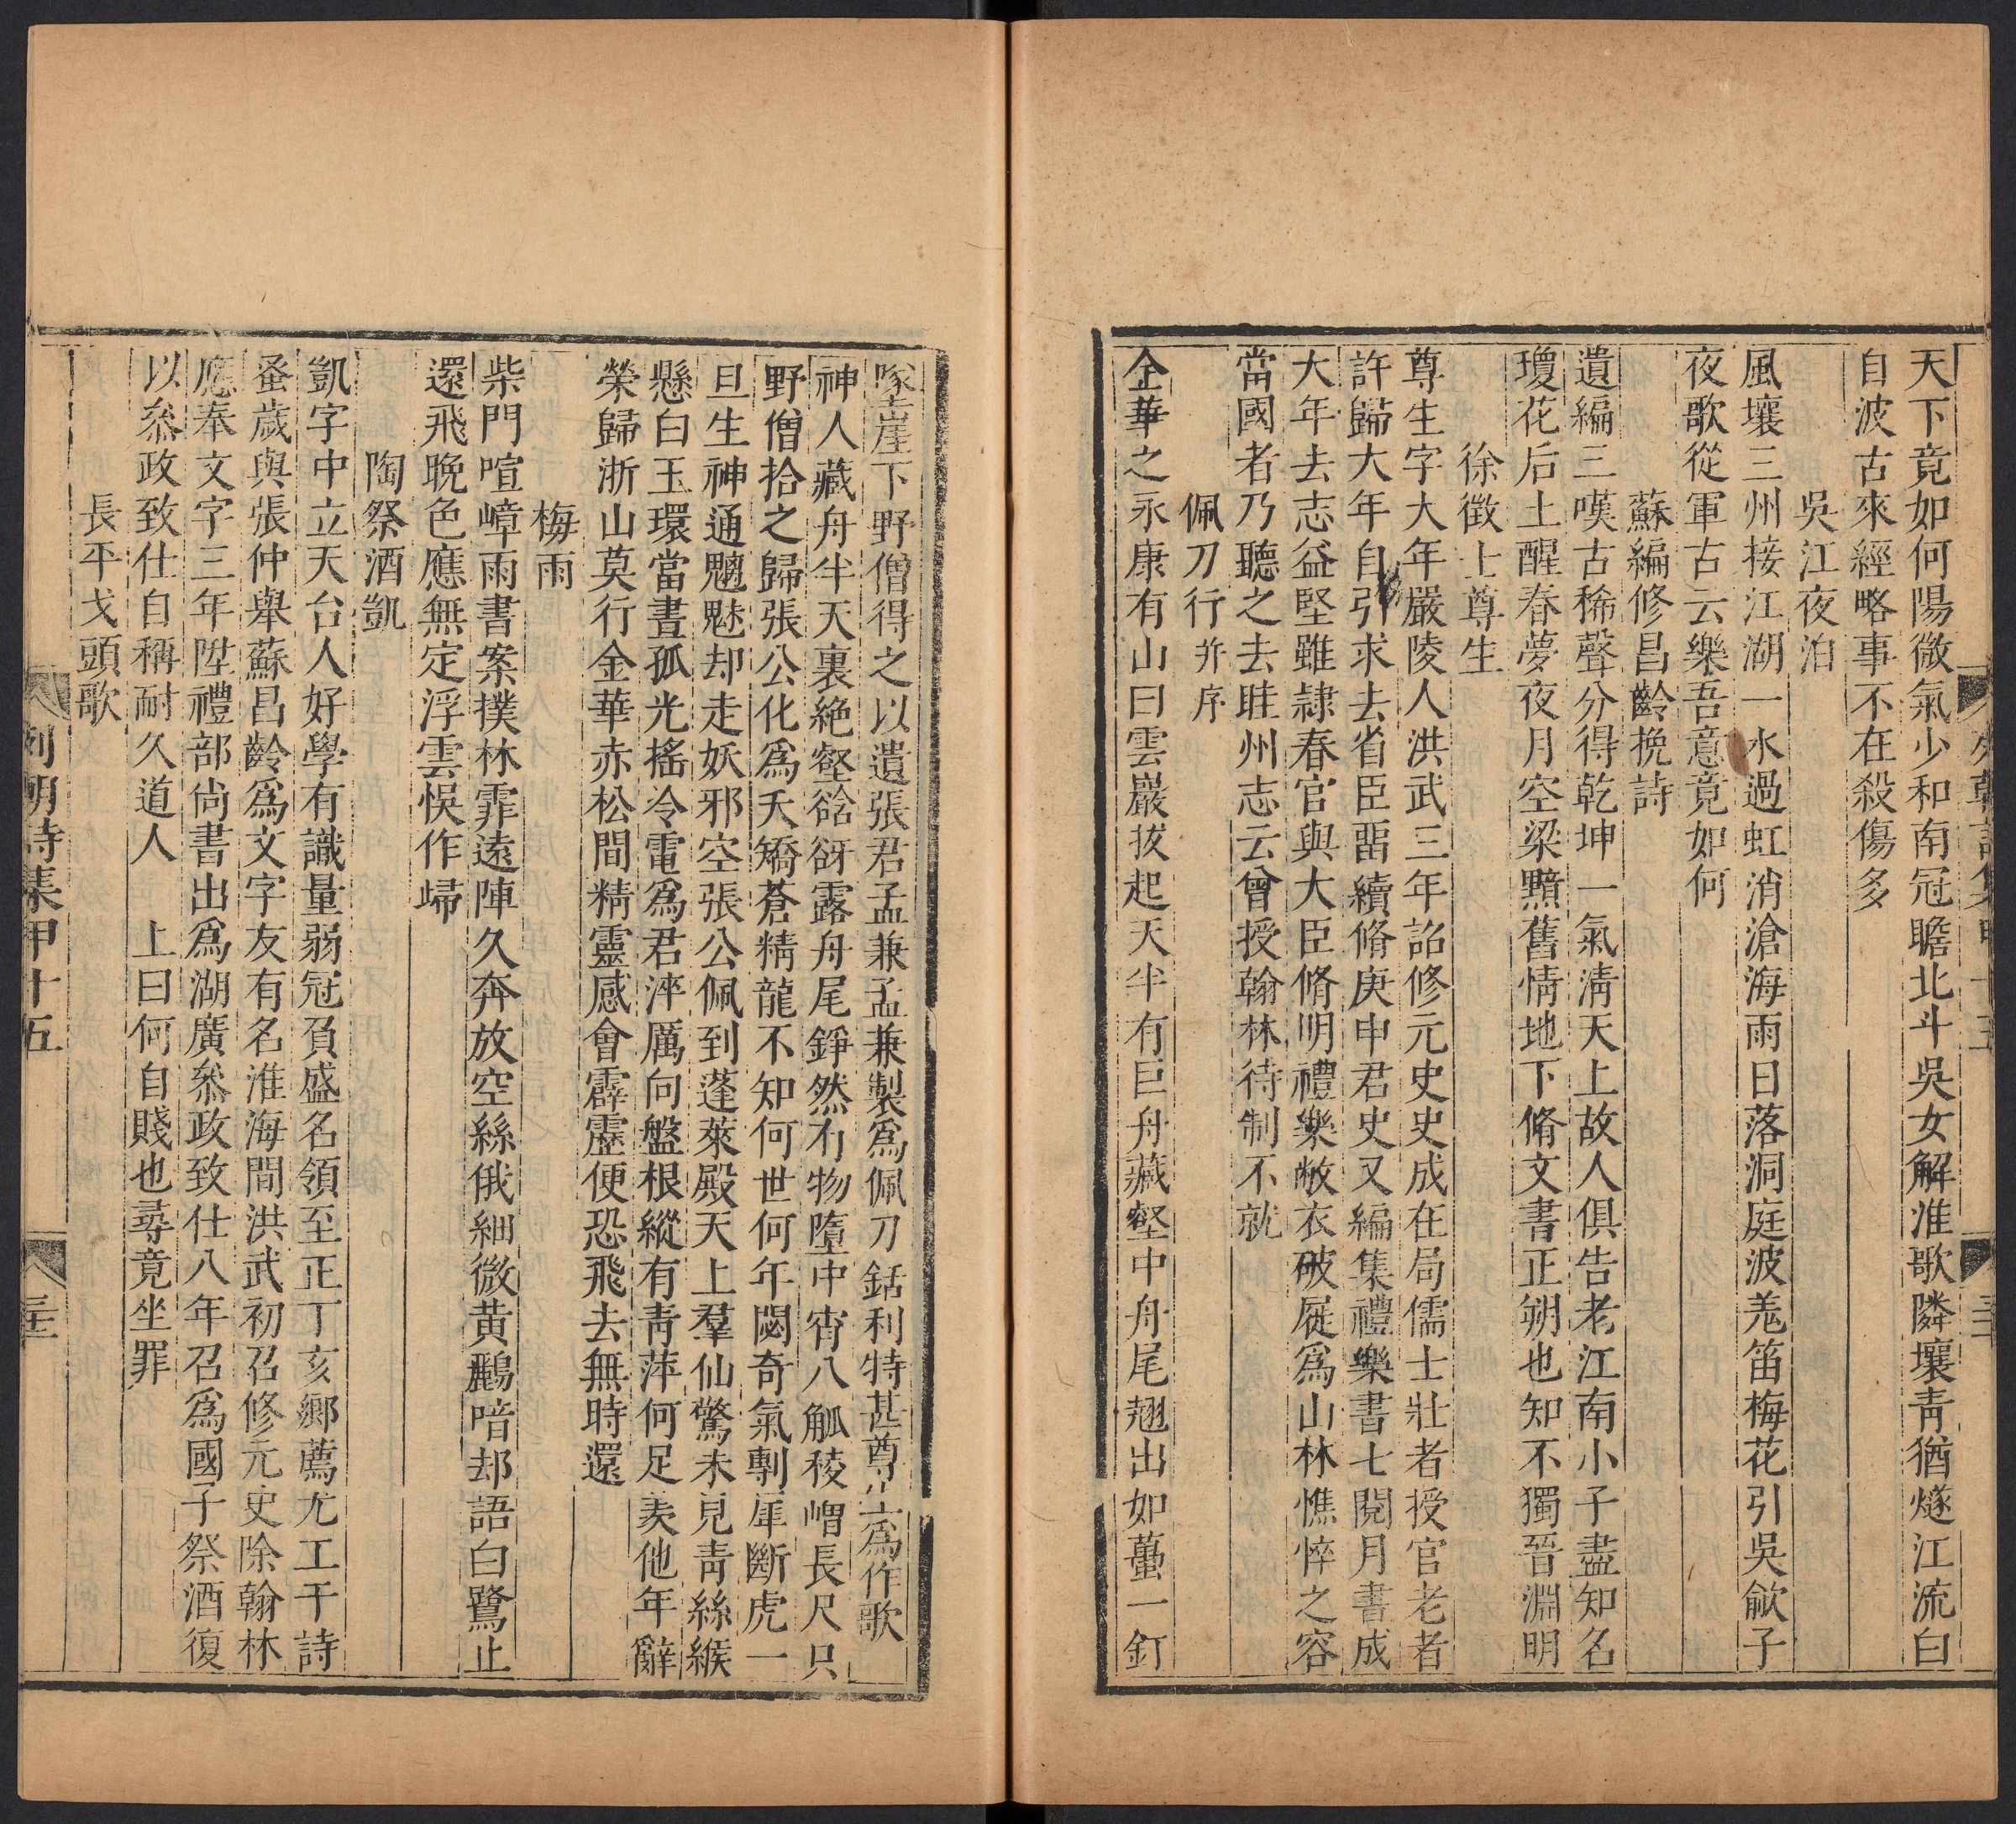 天下竟如何陽微氣少和南冠瞻北斗吳女解淮歌隣壤靑猶燧江流白
自波古來經略事不在殺傷多
吳江夜泊
風壤三州接江湖一水過虹消滄海雨日落洞庭波羗笛梅花引吳歈子
夜歌從軍古云樂吾意竟如何
蘇編修昌齡挽詩
遺編三嘆古稀聲分得乾坤一氣淸天上故人俱告老江南小子盡知名
瓊花后土醒春夢夜月空梁黯舊情地下脩文書正朔也知不獨晉淵明
徐徵士尊生
尊生字大年嚴陵人洪武三年詔修元史史成在局儒士壯者授官老者
許歸大年自引求去省臣畱續脩庚申君史又編集禮樂書七閱月書成
大年去志益堅雖隷春官與大臣脩明禮樂敝衣破屣爲山林憔悴之容
當國者乃聽之去睦州志云曾授翰林待制不就
佩刀行并序
金華之永康有山曰雲巖拔起天半有巨舟藏壑中舟尾翹出如蠆一釘
墜崖下野僧得之以遺張君孟兼孟兼製爲佩刀銛利特甚尊生爲作歌
神人藏舟半天裏絶壑谽谺露舟尾錚然有物墮中宵八觚稜帽長尺只
野僧拾之歸張公化爲夭矯蒼精龍不知何世何年閟奇氣剸犀斷虎一
旦生神通魑魅却走妖邪空張公佩到蓬萊殿天上羣仙驚未見靑絲緱
懸白玉環當晝孤光搖冷電爲君淬厲向盤根縱有靑萍何足羙他年辭
榮歸浙山莫行金華赤松間精靈感會霹靂便恐飛去無時還
梅雨
柴門喧嶂雨書案撲林霏遠陣久奔放空絲俄細微黄鸝喑却語白鷺止
還飛晩色應無定浮雲悞作歸
陶祭酒凱
凱字中立天台人好學有識量弱冠負盛名領至正丁亥鄉薦尤工干詩
蚤歲與張仲舉蘇昌齡爲文字友有名淮海間洪武初召修元史除翰林
應奉文字三年陞禮部尙書出爲湖廣叅政致仕八年召爲國子祭酒復
以叅政致仕自稱耐久道人　上曰何自賤也尋竟坐罪
長平戈頭歌
列朝詩集甲十五